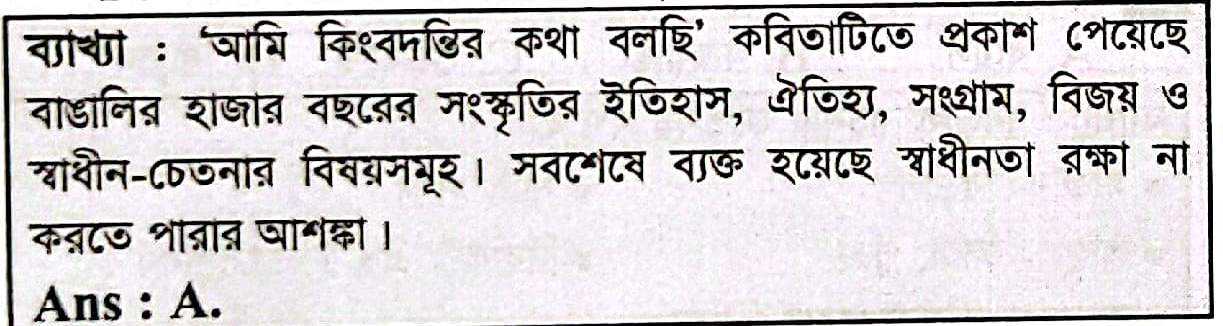 ব্যাখ্যা : 'আমি কিংবদন্তির কথা বলছি' কবিতাটিতে প্রকাশ পেয়েছে
বাঙালির হাজার বছরের সংস্কৃতির ইতিহাস, ঐতিহ্য, সংগ্রাম, বিজয় ও
স্বাধীন-চেতনার বিষয়সমূহ। সবশেষে ব্যক্ত হয়েছে স্বাধীনতা রক্ষা না
করতে পারার আশঙ্কা।
Ans : A.